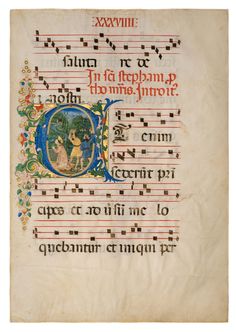 XXXXVIIII
saluta re de
In sci stephani p
tho mris. Introit.
nostri.
E T enim
sederunt pri
cipes et adūsūm me lo
quebantur et iniqui per